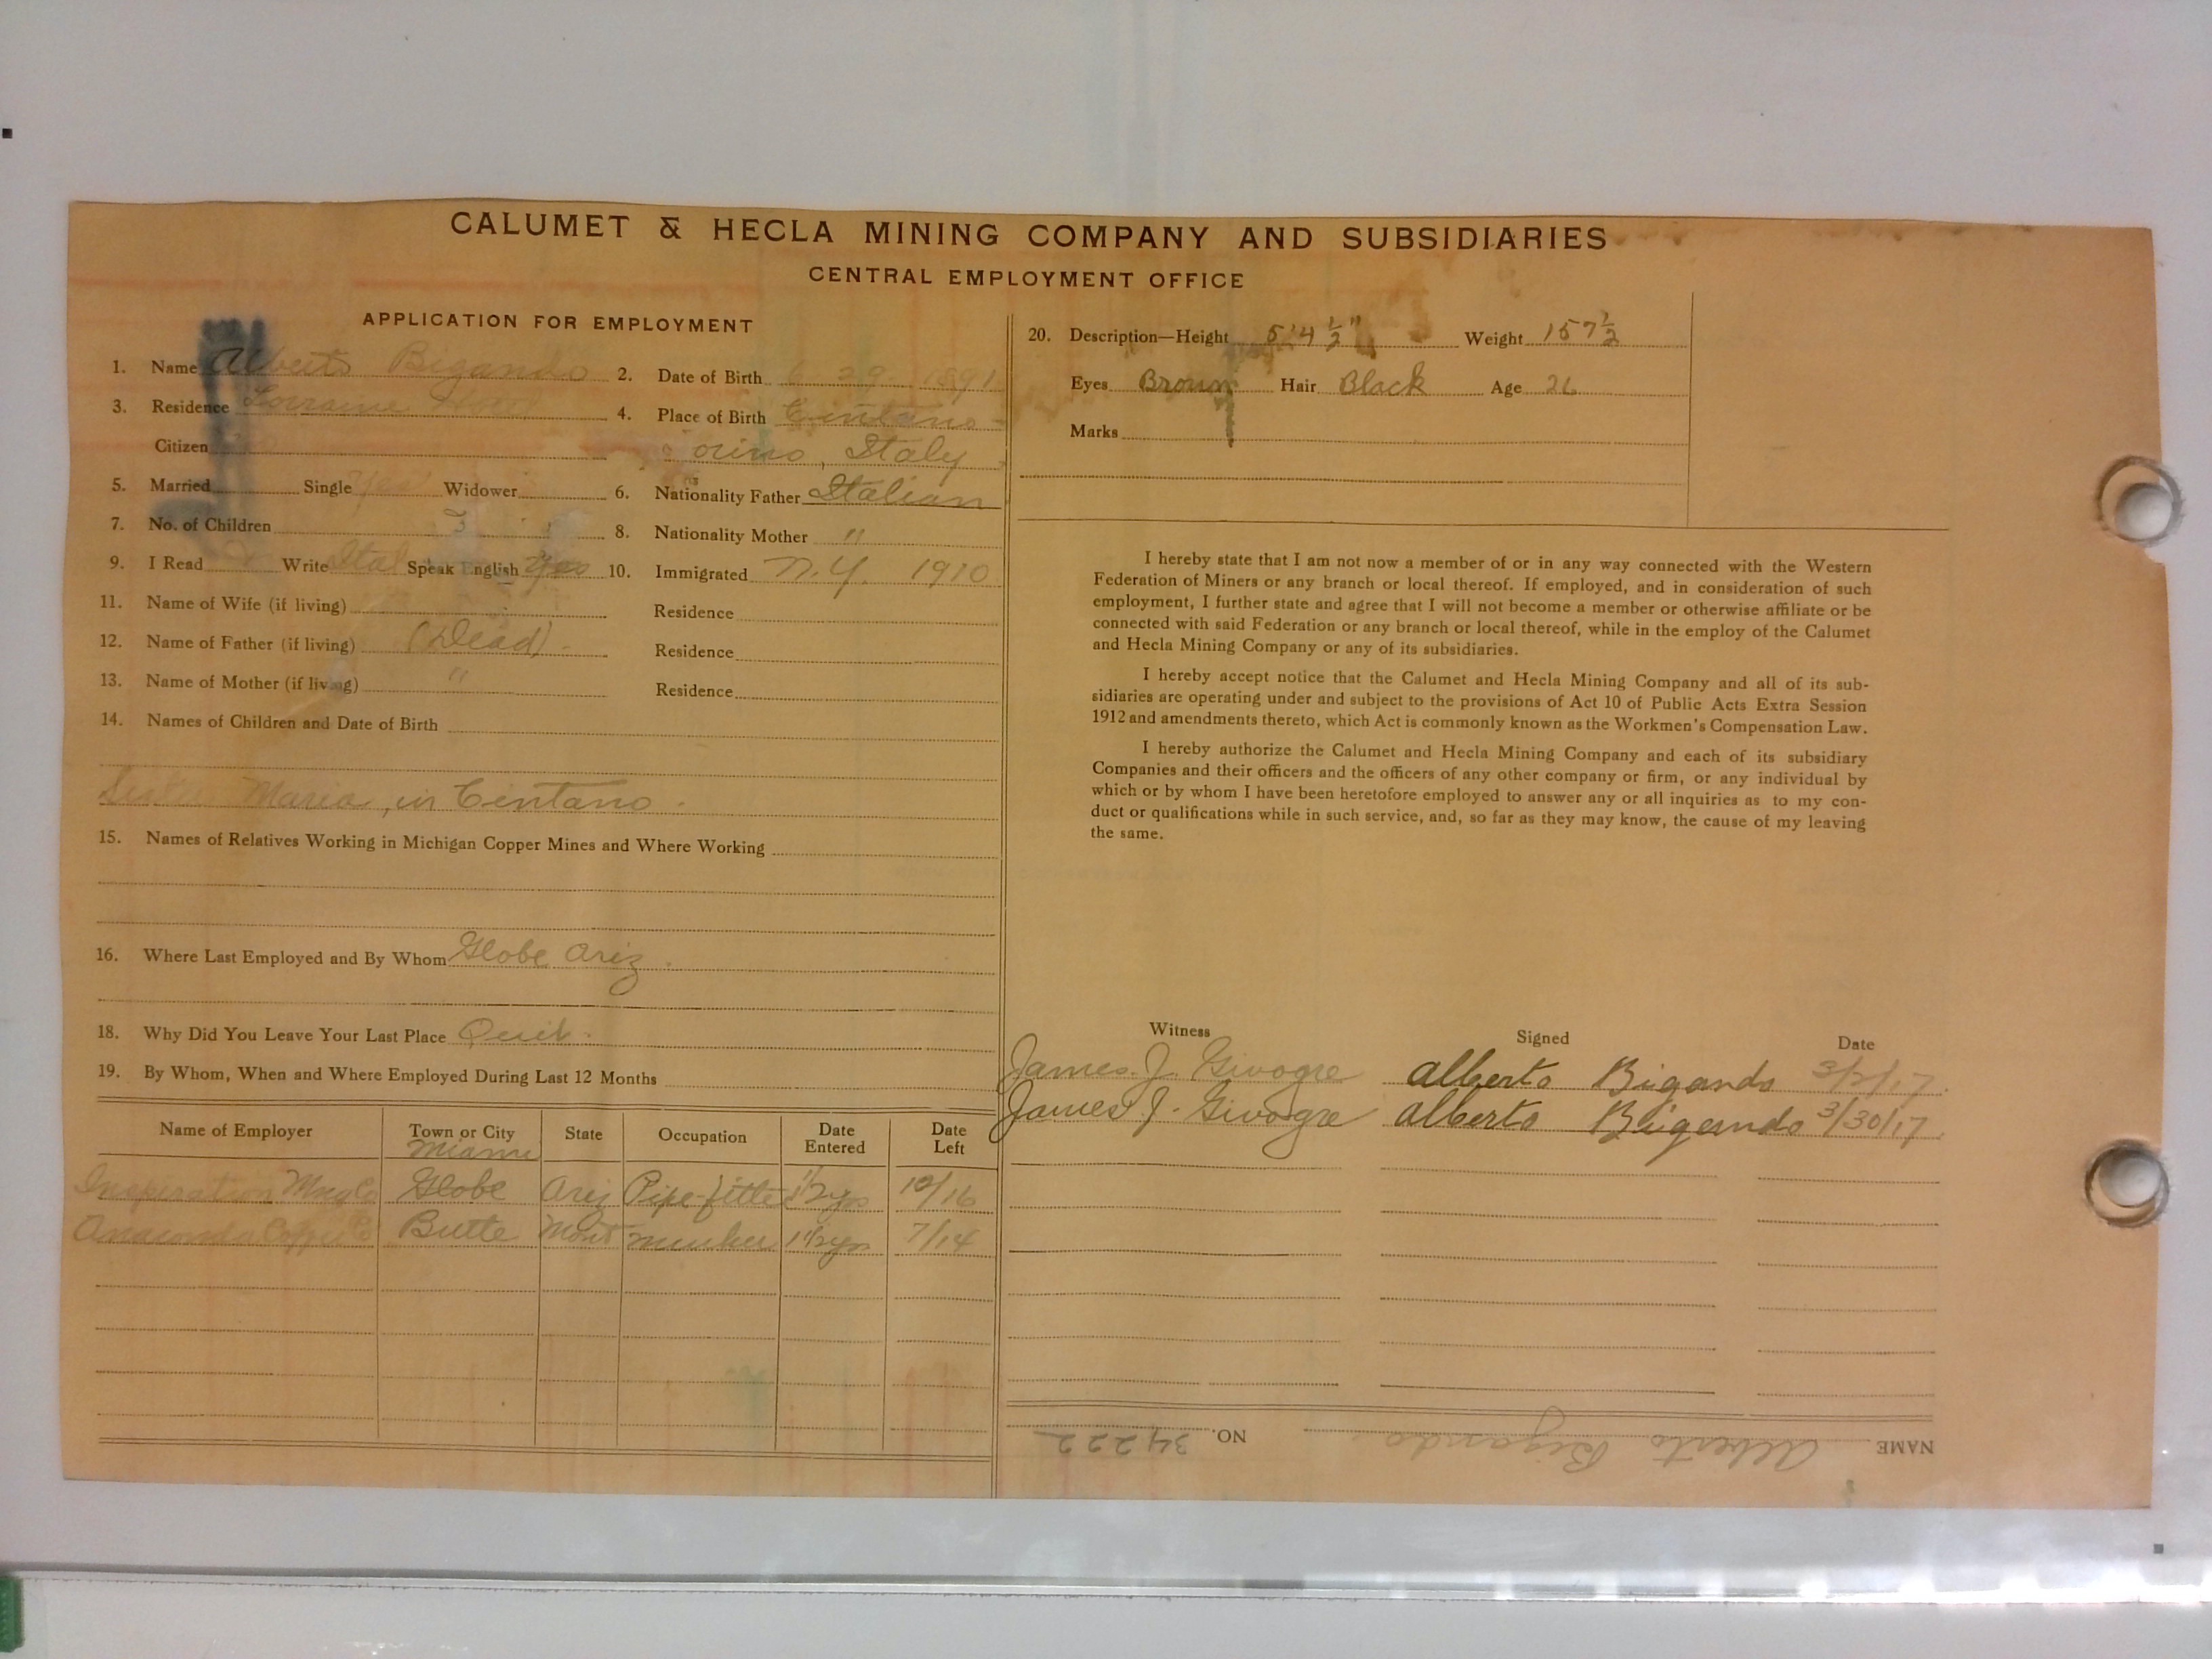 CALUMET & HECLA MINING COMPANY AND SUBSIDIARIES
CENTRAL EMPLOYMENT OFFICE
APPLICATION FOR EMPLOYMENT
1. Name Alberto Bigando 2. Date of Birth 6 29 1891
3. Residence Lorraine 4. Place of Birth Centano
Citizen orino, Italy
5. Married Single Yes Widower 6. Nationality Father Italian
7. No. of Children 8. Nationality Mother "
9. I Read & Write Ital Speak English Yes 10. Immigrated N.Y. 1910
11. Name of Wife (if living) Residence
12. Name of Father (if living) (Dead) - Residence
13. Name of Mother (if living) " Residence
14. Names of Children and Date of Birth
Sister Maria, in Centano.
15. Names of Relatives Working in Michigan Copper Mines and Where Working
16. Where Last Employed and By Whom Globe Ariz.
18. Why Did You Leave Your Last Place Quit.
19. By Whom, When and Where Employed During Last 12 Months
Name of Employer Town or City State Occupation Date Entered Date Left
Miami
Inspiration Mng Co Globe Ariz Pipe-fitter 1 1/2 yrs 10/16
Anaconda Copper Co Butte Mont 1 1/2 yrs 7/14
20. Description—Height 5'4 1/2" Weight 157 1/2
Eyes Brown Hair Black Age 26
Marks
I hereby state that I am not now a member of or in any way connected with the Western
Federation of Miners or any branch or local thereof. If employed, and in consideration of such
employment, I further state and agree that I will not become a member or otherwise affiliate or be
connected with said Federation or any branch or local thereof, while in the employ of the Calumet
and Hecla Mining Company or any of its subsidiaries.
I hereby accept notice that the Calumet and Hecla Mining Company and all of its sub-
sidiaries are operating under and subject to the provisions of Act 10 of Public Acts Extra Session
1912 and amendments thereto, which Act is commonly known as the Workmen's Compensation Law.
I hereby authorize the Calumet and Hecla Mining Company and each of its subsidiary
Companies and their officers and the officers of any other company or firm, or any individual by
which or by whom I have been heretofore employed to answer any or all inquiries as to my con-
duct or qualifications while in such service, and, so far as they may know, the cause of my leaving
the same.
Witness Signed Date
James J. Givogre Alberto Bigando 3/2/17
James J. Givogre Alberto Bigando 3/30/17
NAME Alberto Bigando. NO. 34222